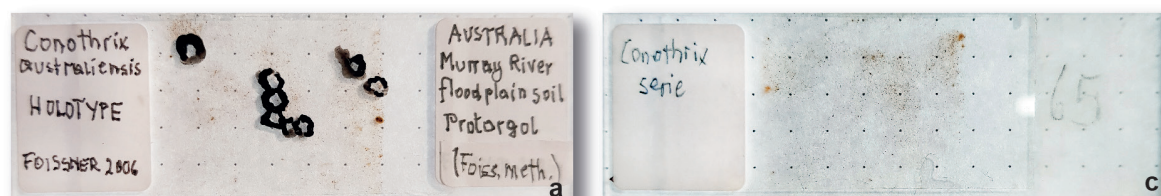 Conothrix
australiensis
HOLOTYPE
FOISSNER 2006
AUSTRALIA
Murray River
floodplain soil
Protargol
(Foiss. meth.)
a
Conothrix
serie
65
c